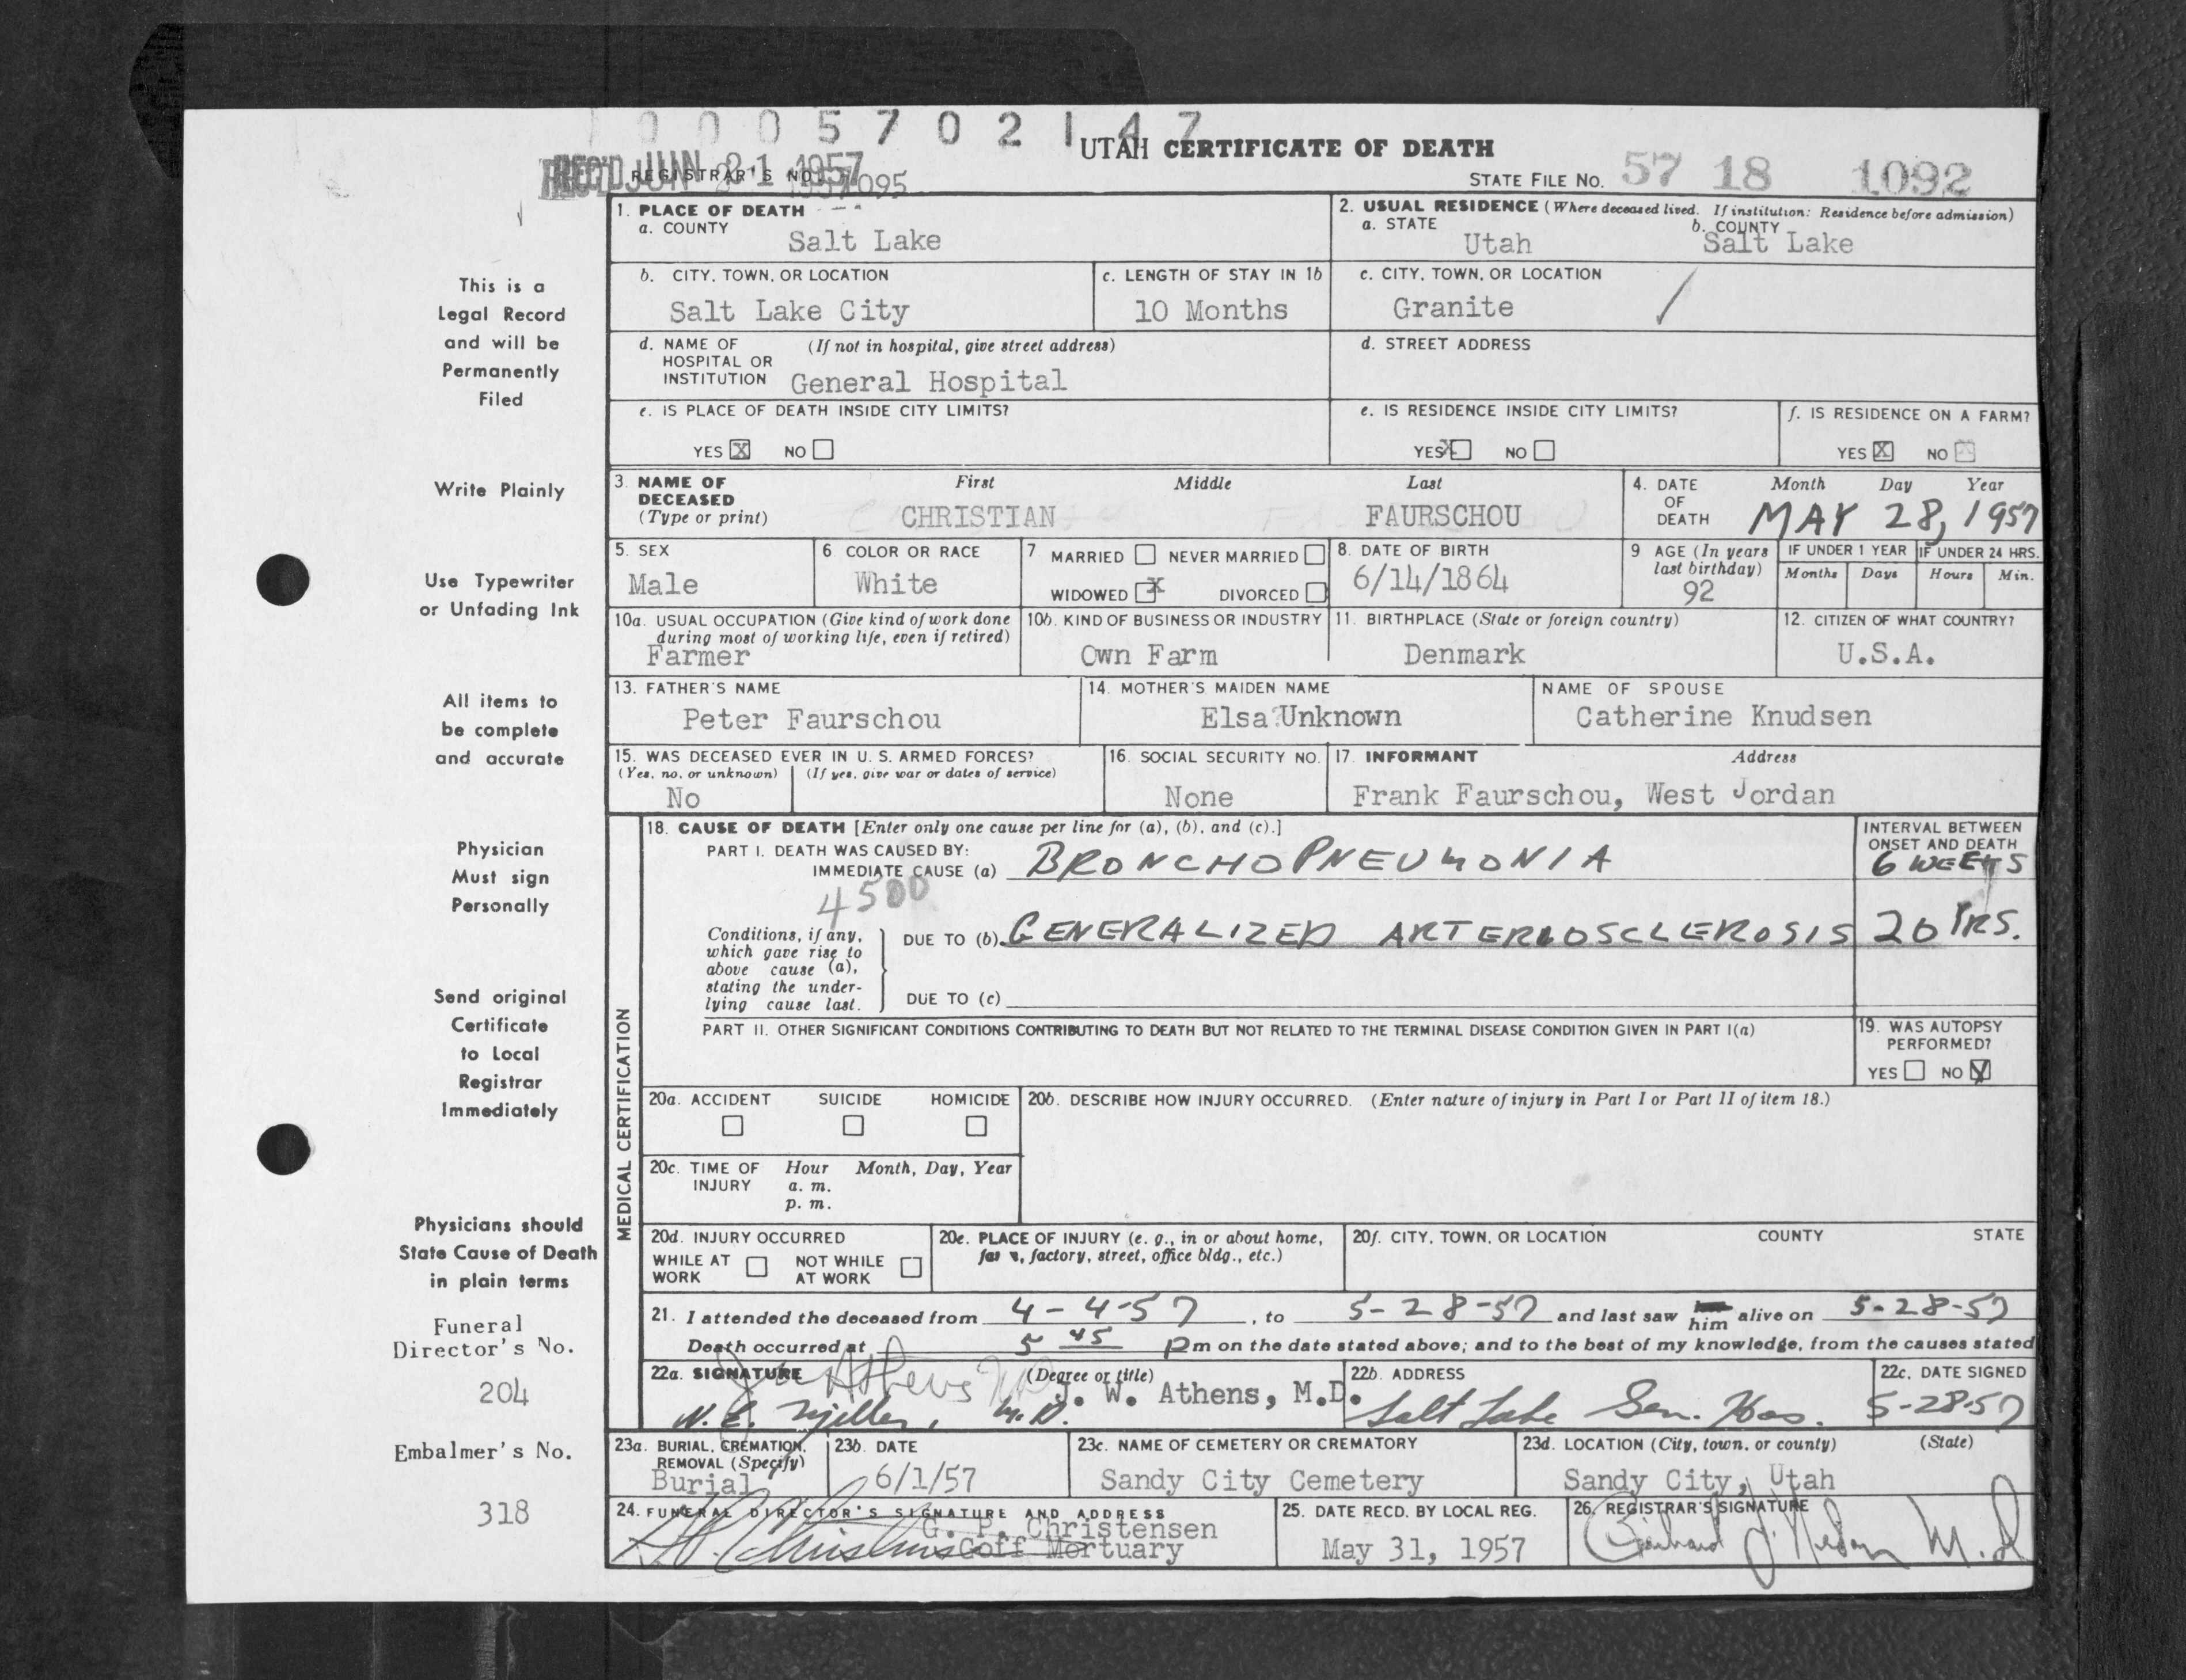 0 0 0 5 7 0 2 1 4 7
UTAH CERTIFICATE OF DEATH
REC'D JUN 21 1957
REGISTRAR'S NO. 1095
STATE FILE NO. 57 18 1092
This is a
Legal Record
and will be
Permanently
Filed
Write Plainly
Use Typewriter
or Unfading Ink
All items to
be complete
and accurate
Physician
Must sign
Personally
Send original
Certificate
to Local
Registrar
Immediately
Physicians should
State Cause of Death
in plain terms
Funeral
Director's No.
204
Embalmer's No.
318
1. PLACE OF DEATH
a. COUNTY
Salt Lake
2. USUAL RESIDENCE (Where deceased lived. If institution: Residence before admission)
a. STATE b. COUNTY
Utah Salt Lake
b. CITY, TOWN, OR LOCATION
Salt Lake City
c. LENGTH OF STAY IN 1b
10 Months
c. CITY, TOWN, OR LOCATION
Granite
d. NAME OF (If not in hospital, give street address)
HOSPITAL OR
INSTITUTION General Hospital
d. STREET ADDRESS
e. IS PLACE OF DEATH INSIDE CITY LIMITS?
YES X NO
e. IS RESIDENCE INSIDE CITY LIMITS?
YES X NO
f. IS RESIDENCE ON A FARM?
YES X NO
3. NAME OF First Middle Last
DECEASED
(Type or print) CHRISTIAN FAURSCHOU
4. DATE Month Day Year
OF
DEATH MAY 28, 1957
5. SEX
Male
6 COLOR OR RACE
White
7 MARRIED NEVER MARRIED
WIDOWED X DIVORCED
8. DATE OF BIRTH
6/14/1864
9 AGE (In years
last birthday)
92
IF UNDER 1 YEAR
Months Days
IF UNDER 24 HRS.
Hours Min.
10a. USUAL OCCUPATION (Give kind of work done
during most of working life, even if retired)
Farmer
10b. KIND OF BUSINESS OR INDUSTRY
Own Farm
11. BIRTHPLACE (State or foreign country)
Denmark
12. CITIZEN OF WHAT COUNTRY?
U.S.A.
13. FATHER'S NAME
Peter Faurschou
14. MOTHER'S MAIDEN NAME
Elsa Unknown
NAME OF SPOUSE
Catherine Knudsen
15. WAS DECEASED EVER IN U. S. ARMED FORCES?
(Yes, no, or unknown) (If yes, give war or dates of service)
No
16. SOCIAL SECURITY NO.
None
17. INFORMANT Address
Frank Faurschou, West Jordan
MEDICAL CERTIFICATION
18. CAUSE OF DEATH [Enter only one cause per line for (a), (b), and (c).]
PART I. DEATH WAS CAUSED BY:
IMMEDIATE CAUSE (a) BRONCHOPNEUMONIA
INTERVAL BETWEEN
ONSET AND DEATH
6 WEEKS
4500
Conditions, if any,
which gave rise to
above cause (a),
stating the under-
lying cause last.
DUE TO (b) GENERALIZED ARTERIOSCLEROSIS 20 YRS.
DUE TO (c)
PART II. OTHER SIGNIFICANT CONDITIONS CONTRIBUTING TO DEATH BUT NOT RELATED TO THE TERMINAL DISEASE CONDITION GIVEN IN PART I(a)
19. WAS AUTOPSY
PERFORMED?
YES NO X
20a. ACCIDENT SUICIDE HOMICIDE
20b. DESCRIBE HOW INJURY OCCURRED. (Enter nature of injury in Part I or Part II of item 18.)
20c. TIME OF Hour Month, Day, Year
INJURY a. m.
p. m.
20d. INJURY OCCURRED
WHILE AT NOT WHILE
WORK AT WORK
20e. PLACE OF INJURY (e. g., in or about home,
farm, factory, street, office bldg., etc.)
20f. CITY, TOWN, OR LOCATION COUNTY STATE
21. I attended the deceased from 4-4-57, to 5-28-57 and last saw him alive on 5-28-57
Death occurred at 5 45 pm on the date stated above; and to the best of my knowledge, from the causes stated
22a. SIGNATURE (Degree or title)
J W Athens MD
J. W. Athens, M.D.
N. E. Miller, M.D.
22b. ADDRESS
Salt Lake Gen. Hos.
22c. DATE SIGNED
5-28-57
23a. BURIAL, CREMATION,
REMOVAL (Specify)
Burial
23b. DATE
6/1/57
23c. NAME OF CEMETERY OR CREMATORY
Sandy City Cemetery
23d. LOCATION (City, town, or county) (State)
Sandy City, Utah
24. FUNERAL DIRECTOR'S SIGNATURE AND ADDRESS
G. P. Christensen
Goff Mortuary
25. DATE RECD. BY LOCAL REG.
May 31, 1957
26. REGISTRAR'S SIGNATURE
M.D.